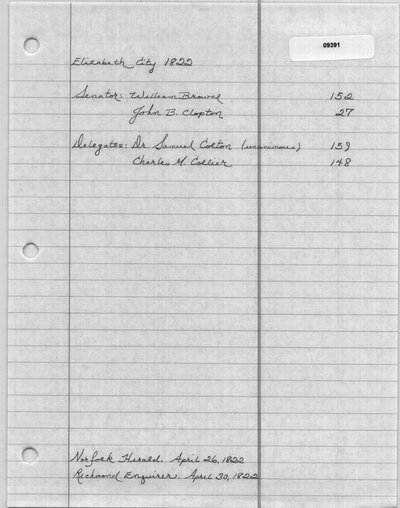 09391
Elizabeth City 1822
Senator: William Browne 152
John B. Clopton 27
Delegates: Dr. Samuel Colton (unanimous) 159
Charles M. Collier 148
Norfolk Herald. April 26, 1822
Richmond Enquirer. April 30, 1822